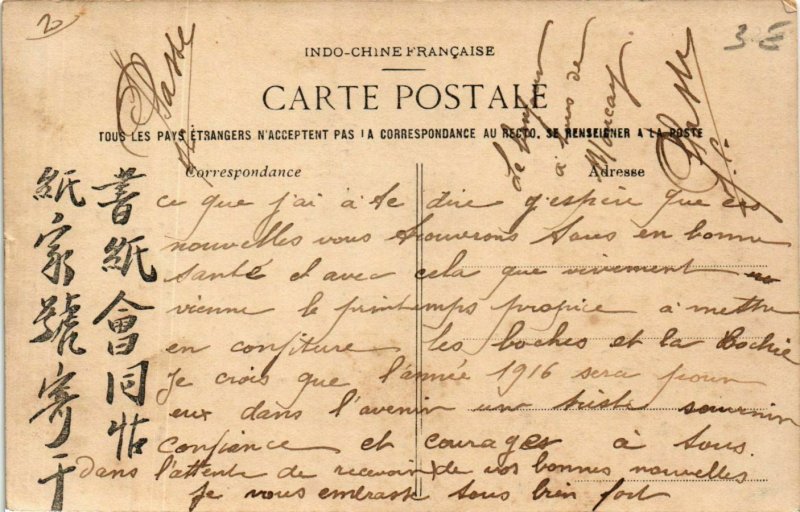 20
3-E
INDO-CHINE FRANÇAISE
CARTE POSTALE
TOUS LES PAYS ÉTRANGERS N'ACCEPTENT PAS LA CORRESPONDANCE AU RECTO. SE RENSEIGNER A LA POSTE
Correspondance
Adresse
Le bonjour
à tous de
Moncay
書紙會同帖
紙家號寄干
ce que j'ai à te dire j'espère que ces
nouvelles vous trouverons tous en bonne
santé et avec cela que vivement
vienne le printemps propice à mettre
en confiture les boches et la Bochie
Je crois que l'année 1916 sera pour
eux dans l'avenir un triste souvenir
confiance et courages à tous.
dans l'attente de recevoir de vos bonnes nouvelles
Je vous embrasse tous bien fort